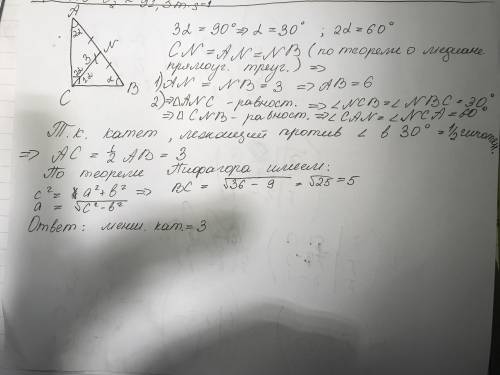 A
2α
N
3
2α
3α
α
C
B
3α = 90° ⇒ α = 30° ; 2α = 60°
CN = AN = NB (по теореме о медиане
прямоуг. треуг.) ⇒
1) AN = NB = 3 ⇒ AB = 6
2) ⇒ △ANC - равност. ⇒ ∠NCB = ∠NBC = 30°
⇒ △CNB - равност. ⇒ ∠CAN = ∠NCA = 60°
Т.к. катет, лежающий против ∠ в 30° = 1/2 гипотен.
⇒ AC = 1/2 AB = 3
По теореме Пифагора имеем:
c² = a² + b² ⇒ BC = √36 - 9 = √25 = 5
a = √c² - b²
Ответ: меньш. кат. = 3